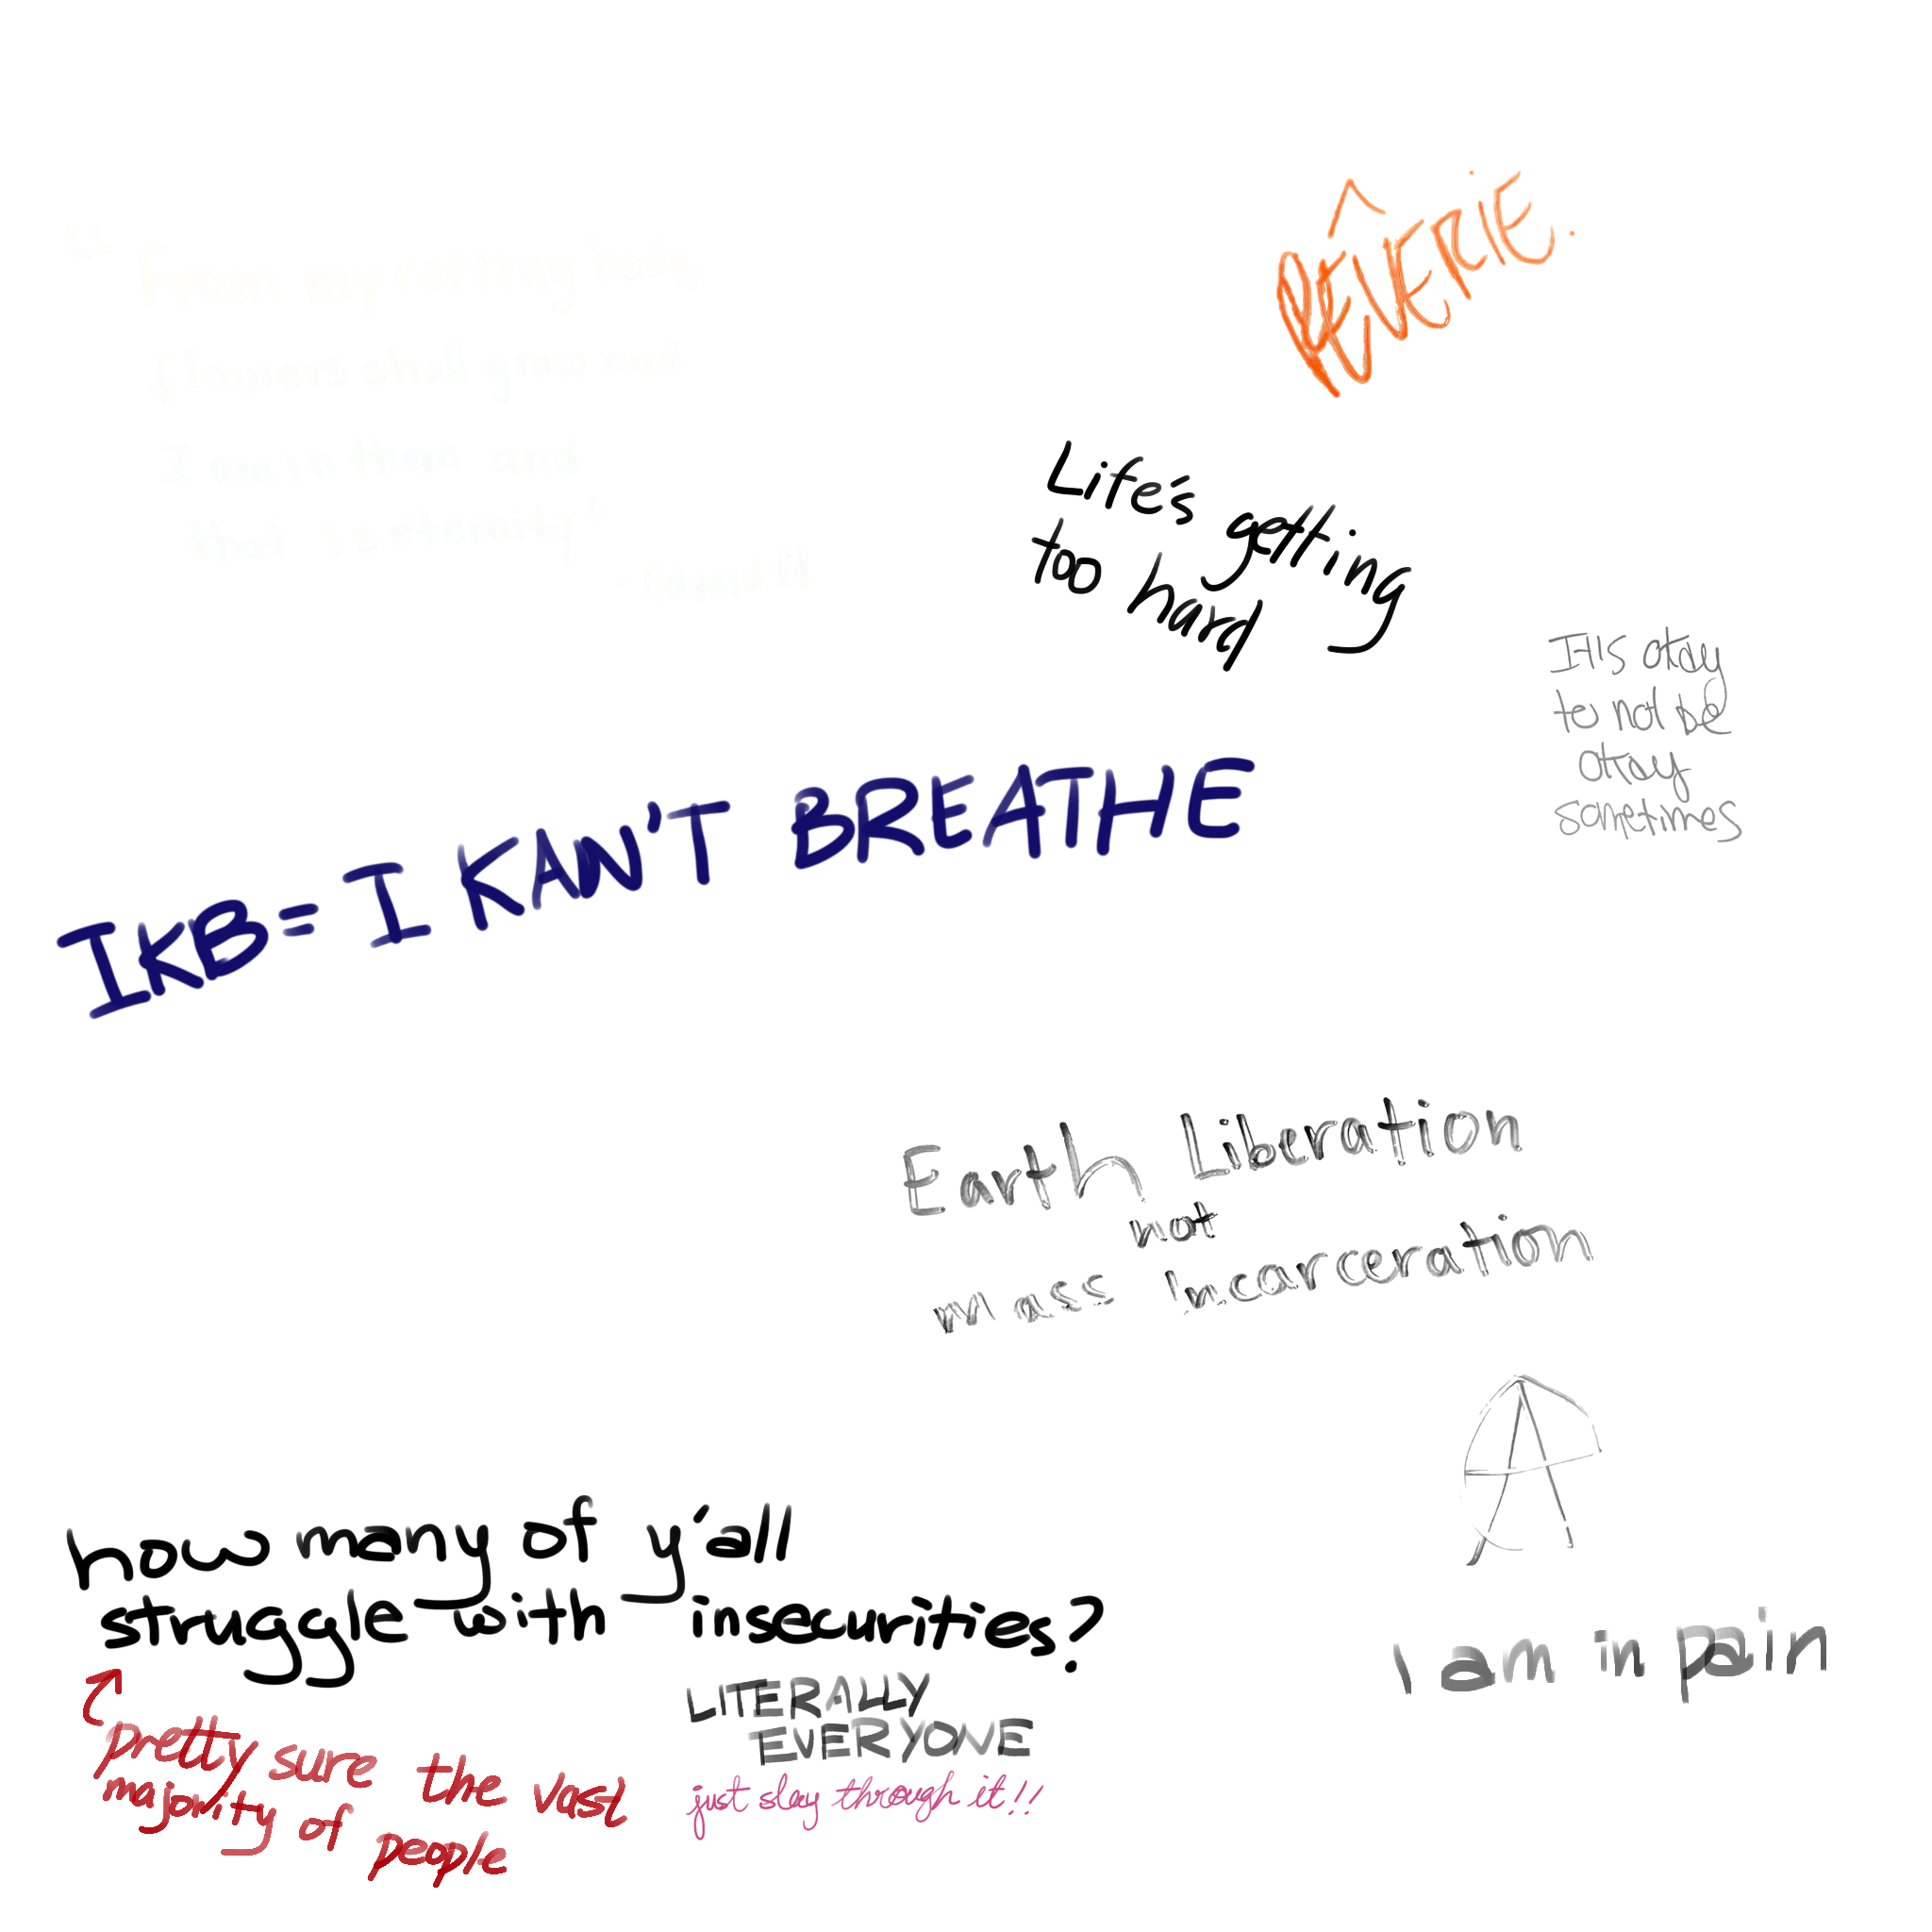 RÊVERIE.
"From my rotting body
flowers shall grow and
I am in them and
that is eternity"
Life's getting
too hard
It's okay
to not be
okay
sometimes
IKB = I KAN'T BREATHE
Earth Liberation
not
mass Incarceration
A
how many of y'all
struggle with insecurities?
pretty sure the vast
majority of
people
LITERALLY
EVERYONE
just slay through it!!
I am in pain